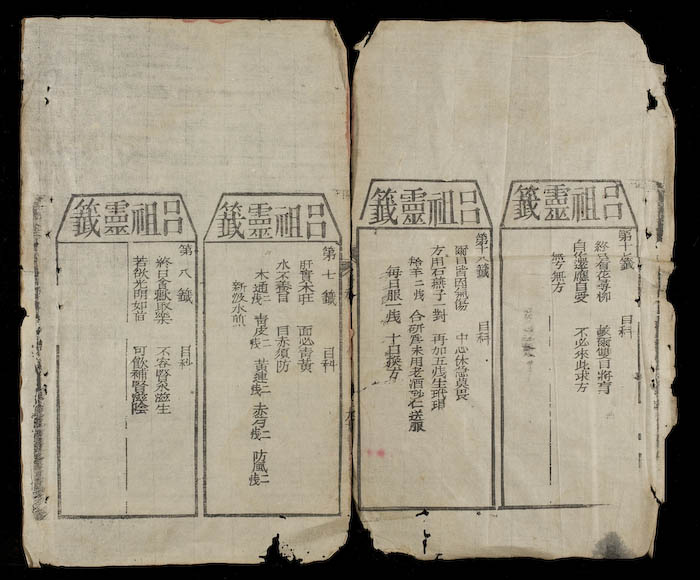 呂祖靈籤
目科
終日看花尋柳 致爾雙目將盲
自作還應自受 不必來此求方
無方
呂祖靈籤
第十八籤 目科
爾目皆因氣傷 中心休急莫畏
方用石燕子一對 再加五戔生玳瑁
羚羊二戔 合研爲末用老酒砂仁送服
每日服一戔 十日換方
呂祖靈籤
第七籤 目科
肝實木旺 面必青黃
水不養目 目赤須防
木通二戔 青皮二戔 黃連二戔 赤芍二戔 防風二戔
新汲水煎
呂祖靈籤
第八籤 目科
終日貪歡取樂 不容賢水滋生
若欲光明如昔 可飲補賢滋陰